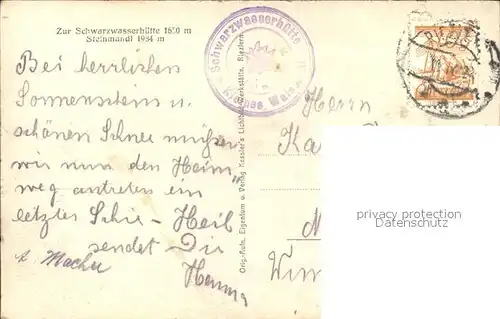 Zur Schwarzwasserhütte 1620 m
Steinmandl 1984 m
Bei herrlichem
Sonnenschein u.
schönen Schnee müssen
wir nun den Heim
weg antreten ein
letztes Schie - Heil
sendet Dir
Schwarzwasserhütte
Kleines Wals
Orig.-Aufn. Eigentum u. Verlag Kessler's Lichtbildwerkstätte, Riezlern
Herrn
Ka
privacy protection
Datenschutz